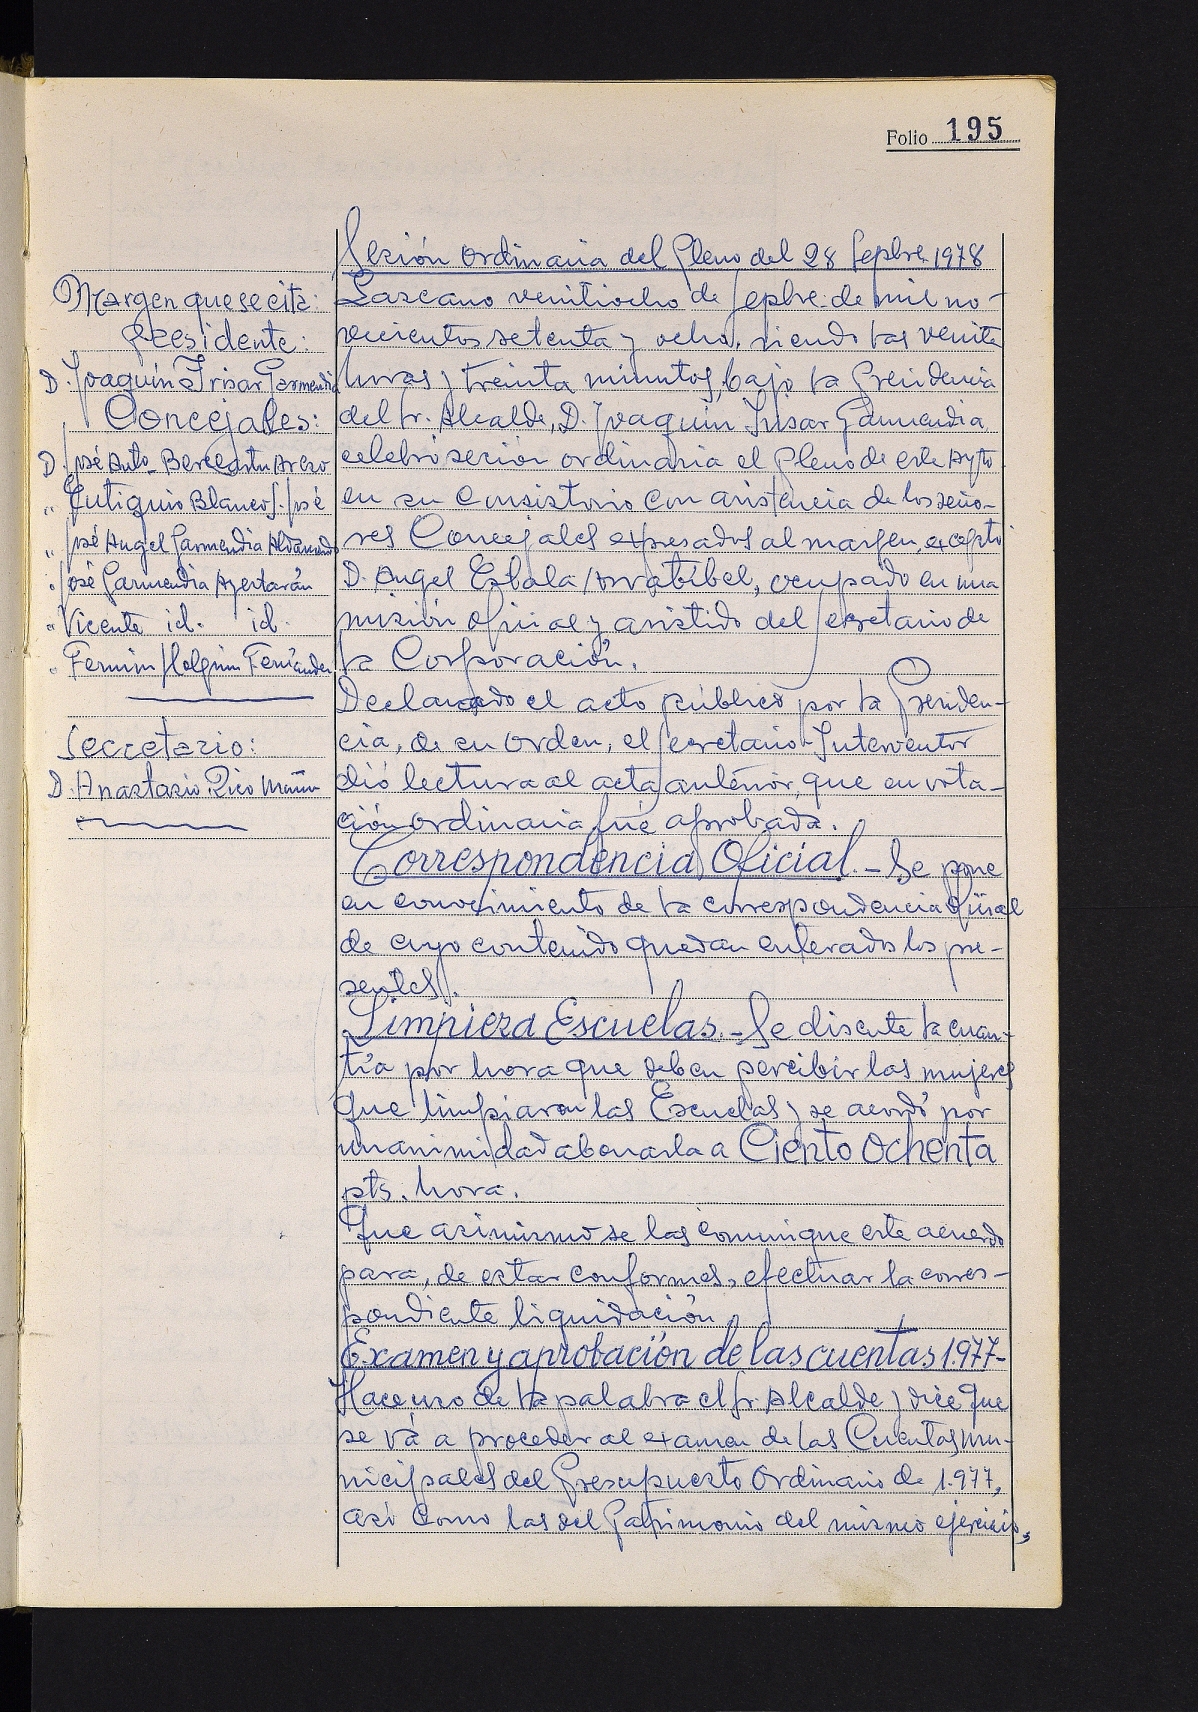 Folio 195
Margen que se cita:
Presidente:
D. Joaquín Irizar Garmendia
Concejales:
D. José Anto
" Eutiquio Blanco S. José
" José Angel Garmendia
" José Garmendia
" Vicente id. id.
" Fermin Holguin Fernández
Secretario:
D. Anastasio Rico
Sesión ordinaria del Pleno del 28 Sepbre. 1978
Lazcano veintiocho de Sepbre. de mil no-
vecientos setenta y ocho, siendo las veinte
horas y treinta minutos, bajo la Presidencia
del Sr. Alcalde, D. Joaquín Irizar Garmendia
celebró sesión ordinaria el Pleno de este Ayto
en su Consistorio con asistencia de los seño-
res Concejales expresados al margen, excepto
D. Angel Esbala Arratibel, ocupado en una
misión oficial y asistido del Secretario de
la Corporación.
Declarado el acto público por la Presiden-
cia, de su orden, el Secretario-Interventor
dió lectura al acta anterior, que en vota-
ción ordinaria fué aprobada.
Correspondencia Oficial.- Se pone
en conocimiento de la correspondencia oficial
de cuyo contenido quedan enterados los pre-
sentes.
Limpieza Escuelas.- Se discute la cuan-
tía por hora que deben percibir las mujeres
que limpiaron las Escuelas y se acordó por
unanimidad abonarla a Ciento Ochenta
pts. hora.
Que asimismo se las comunique este acuerdo
para, de estar conformes, efectuar la corres-
pondiente liquidación.
Examen y aprobación de las cuentas 1.977-
Hace uso de la palabra el Sr. Alcalde y dice que
se vá a proceder al examen de las Cuentas mu-
nicipales del Presupuesto Ordinario de 1.977,
así como las del Patrimonio del mismo ejercicio,